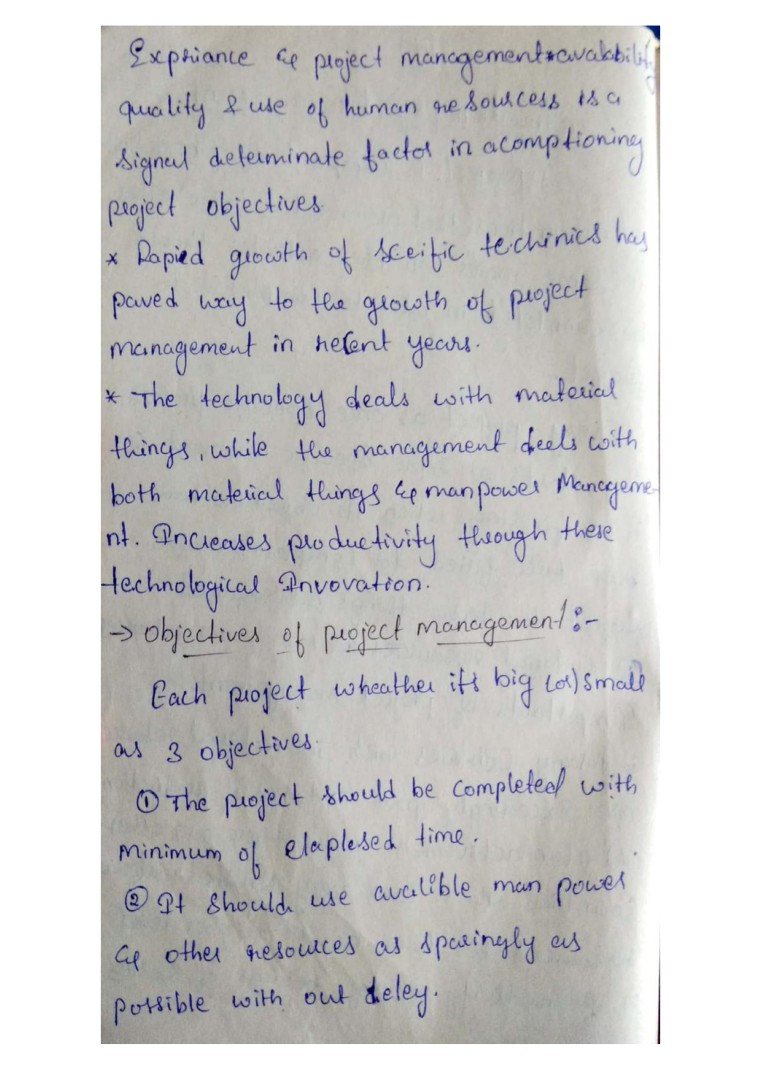 Expriance & project management*avalability
quality & use of human resourcess is a
signul determinate factor in acomptioning
project objectives
* Rapied growth of sceific techinics has
paved way to the growth of project
management in recent years.
* The technology deals with material
things, while the management deels with
both material things & manpower Manageme-
nt. Increases productivity through these
technological Invovation.
→ objectives of project management:-
Each project wheather its big (or) small
as 3 objectives.
① The project should be completed with
minimum of elaplesed time.
② It should use avalible man power
& other resources as sparingly as
possible with out deley.